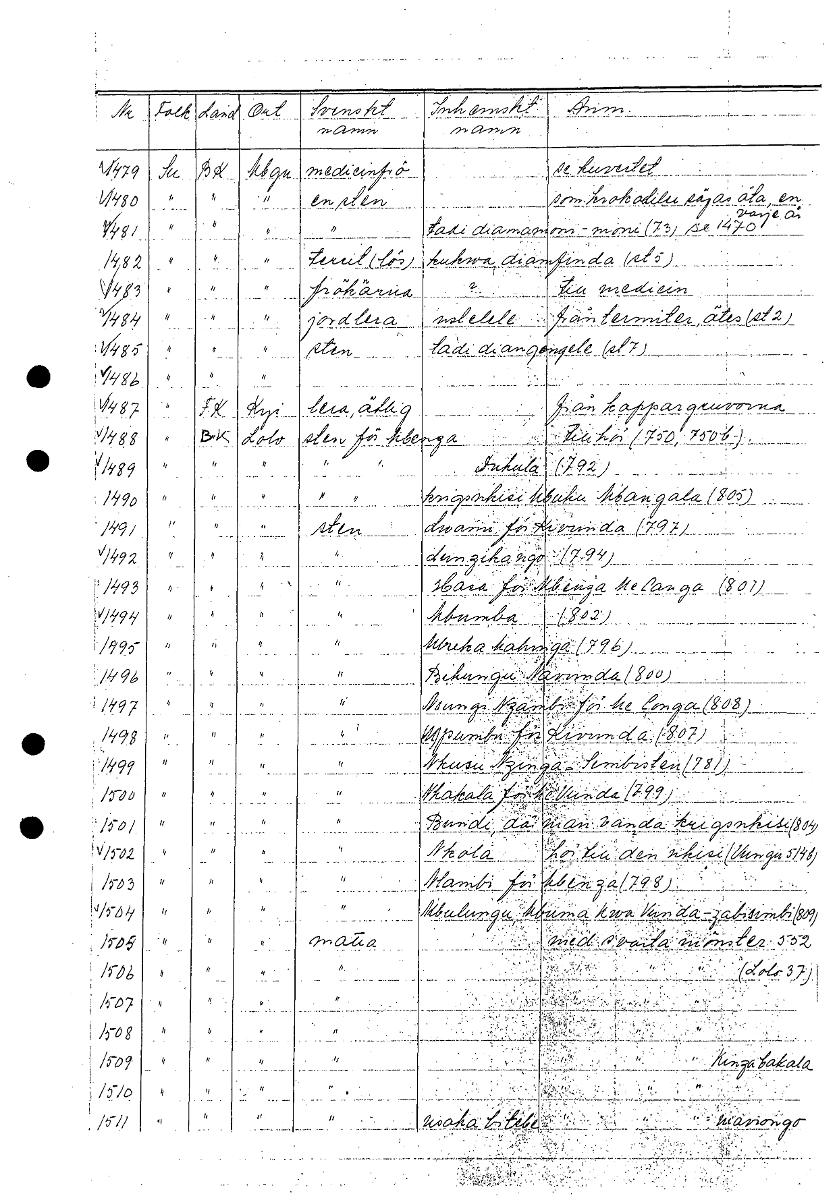 Nr Folk Land Ort Svenskt namn Inhemskt namn Anm.
√1479 Su BK Mbgu medicinfrö se kuvertet
√1480 " " " en sten som krokodilen säges äta, en varje år
√1481 " " " " tadi diamamoni-moni (73) se 1470
1482 " " " (lös) kukwa diamfinda (st 5)
√1483 " " " frökärna ? till medicin
√1484 " " " jordlera från termiter, ätes (st 2)
√1485 " " " sten tadi diangongele (st 7)
√1486 " " "
√1487 " FK Kyi lera, ätlig från koppargruvorna
√1488 " BK Lolo sten för Mbenza till hör (750, 750b)
√1489 " " " " " Inkula (792)
1490 " " " " " krigsnkisi Mbaku Mbangala (805)
1491 " " " sten för Kivunda (797)
√1492 " " " " (794)
1493 " " " " för Mbenza (801)
√1494 " " " " Mbumba (802)
1495 " " " " (796)
1496 " " " " Bikungu Navunda (800)
1497 " " " " Nsungi Nzambi för Ne Conga (808)
1498 " " " " Mpumbu för Kivunda (807)
1499 " " " " Nkusu Nzinga - Simbisten (781)
1500 " " " " Nkakala för Ne Vunda (799)
1501 " " " " Bundi, då man vanda krigsnkisi (804)
√1502 " " " " Nkola hör till den nkisi (Vungu 5146)
1503 " " " " Nlambi för Mbenza (798)
√1504 " " " " Mbulungu Mbuma Kwa Vunda-zabisimbi (809)
1505 " " " matta med svarta mönster 552
1506 " " " " " " (Lolo 37)
1507 " " " "
1508 " " " " "
1509 " " " " " " Kinzabakala
1510 " " " " " "
1511 " " " " nsaka bitebe " " " maviongo